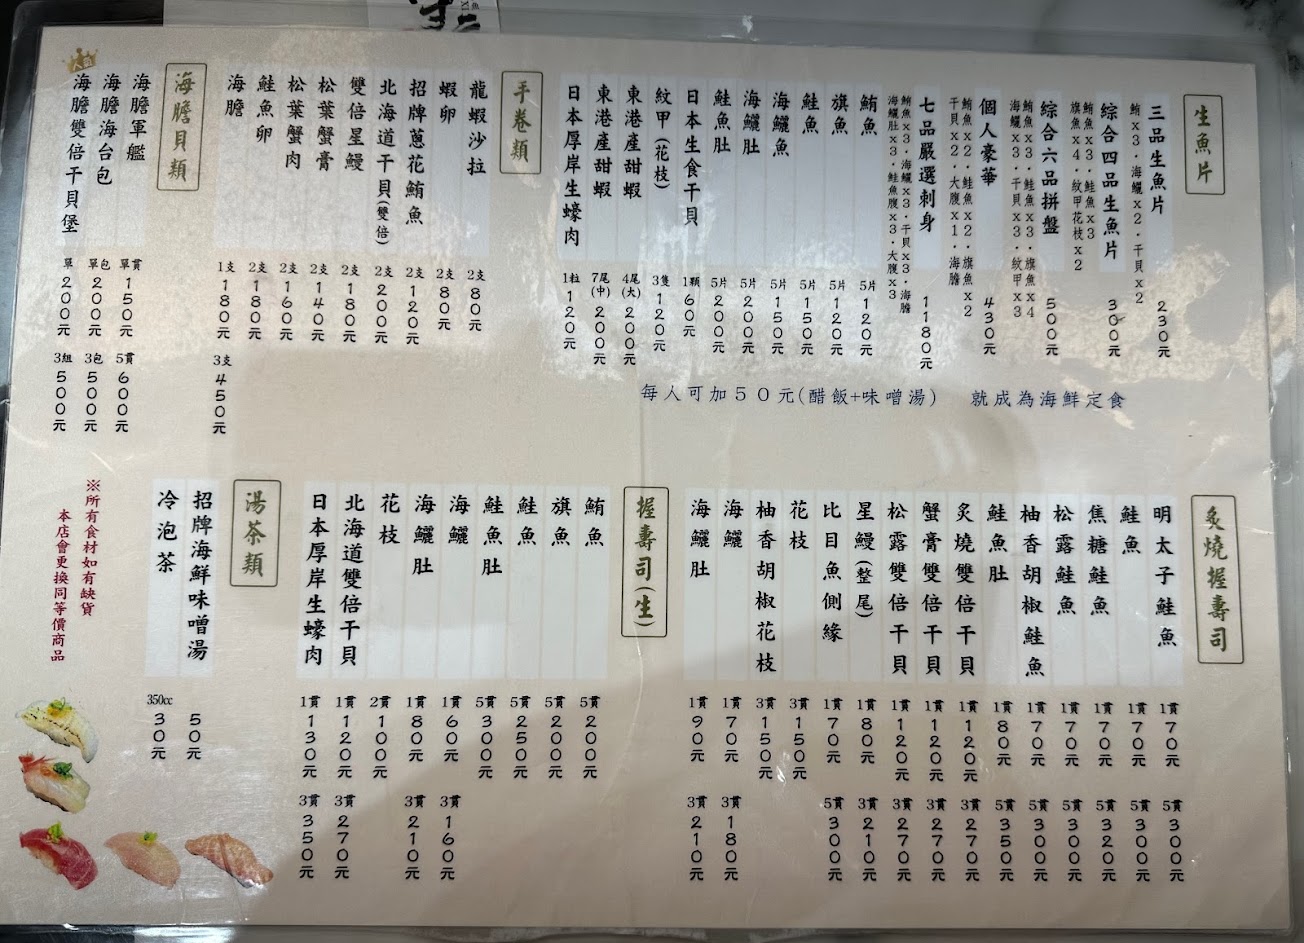 生魚片
三品生魚片 230元
鮪x3·海鱺x2·干貝x2
綜合四品生魚片 300元
鮪魚x3·鮭魚x3
旗魚x4·紋甲花枝x2
綜合六品拼盤 500元
鮪魚x3·鮭魚x3·旗魚x4
海鱺x3·干貝x3·紋甲x3
個人豪華 430元
鮪魚x2·鮭魚x2·旗魚x2
干貝x2·大腹x1·海膽
七品嚴選刺身 1180元
鮪魚x3·海鱺x3·干貝x3·海膽
海鱺肚x3·鮭魚腹x3·大腹x3
鮪魚 5片120元
旗魚 5片120元
鮭魚 5片150元
海鱺魚 5片150元
海鱺肚 5片200元
鮭魚肚 5片200元
日本生食干貝 1顆60元
紋甲(花枝) 3隻120元
東港產甜蝦 4尾(大)200元
東港產甜蝦 7尾(中)200元
日本厚岸生蠔肉 1粒120元
每人可加50元(醋飯+味噌湯) 就成為海鮮定食
手卷類
龍蝦沙拉 2支80元
蝦卵 2支80元
招牌蔥花鮪魚 2支120元
北海道干貝(雙倍) 2支200元
雙倍星鰻 2支180元
松葉蟹膏 2支140元
松葉蟹肉 2支160元
鮭魚卵 2支180元
海膽 1支180元 3支450元
海膽貝類
海膽軍艦 單貫150元 5貫600元
海膽海台包 單包200元 3包500元
人氣
海膽雙倍干貝堡 單200元 3組500元
炙燒握壽司
明太子鮭魚 1貫70元 5貫300元
鮭魚 1貫70元 5貫300元
焦糖鮭魚 1貫70元 5貫320元
松露鮭魚 1貫70元 5貫300元
柚香胡椒鮭魚 1貫70元 5貫300元
鮭魚肚 1貫80元 5貫350元
炙燒雙倍干貝 1貫120元 3貫270元
蟹膏雙倍干貝 1貫120元 3貫270元
松露雙倍干貝 1貫120元 3貫270元
星鰻(整尾) 1貫80元 3貫210元
比目魚側緣 1貫70元 5貫300元
花枝 3貫150元
柚香胡椒花枝 3貫150元
海鱺 1貫70元 3貫180元
海鱺肚 1貫90元 3貫210元
握壽司(生)
鮪魚 5貫200元
旗魚 5貫200元
鮭魚 5貫250元
鮭魚肚 5貫300元
海鱺 1貫60元 3貫160元
海鱺肚 1貫80元 3貫210元
花枝 2貫100元
北海道雙倍干貝 1貫120元 3貫270元
日本厚岸生蠔肉 1貫130元 3貫350元
湯茶類
招牌海鮮味噌湯 50元
冷泡茶 350cc30元
※所有食材如有缺貨
本店會更換同等價商品